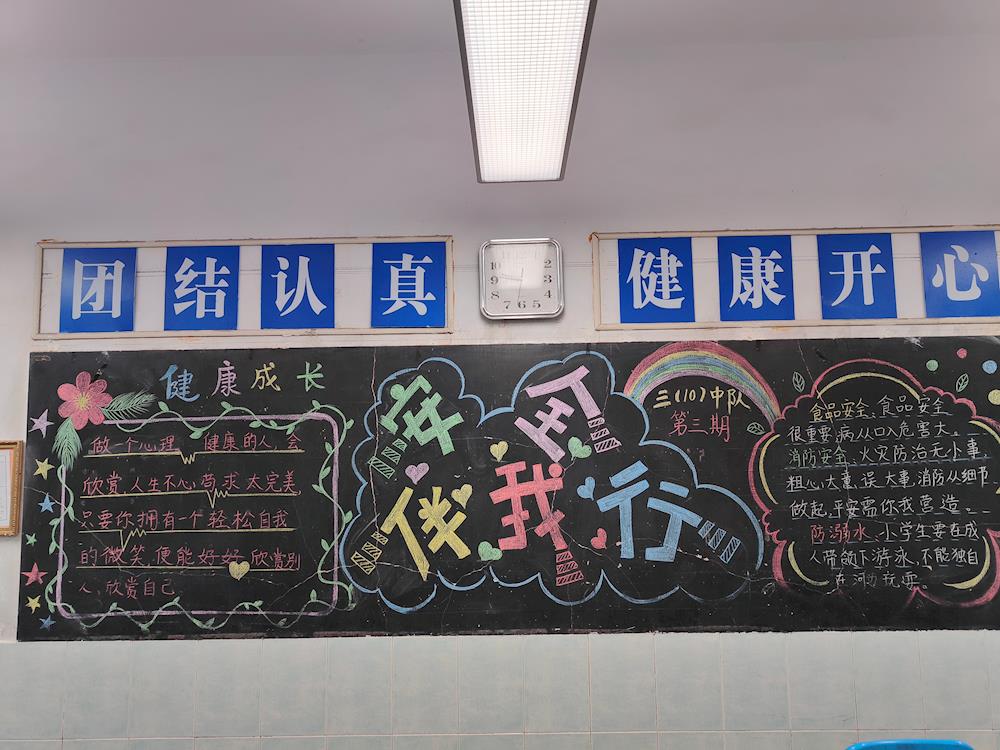 团结认真
健康开心
健康成长
做一个心理健康的人,会
欣赏人生不心苟求太完美,
只要你拥有一个轻松自我
的微笑,便能好好欣赏别
人,欣赏自己
安全
伴我行
三(10)中队
第三期
食品安全、食品安全
很重要,病从口入危害大。
消防安全、火灾防治无小事,
粗心大事,误大事,消防从细节
做起,平安需你我营造。
防溺水、小学生要在成
人带领下游泳,不能独自
在河边玩耍